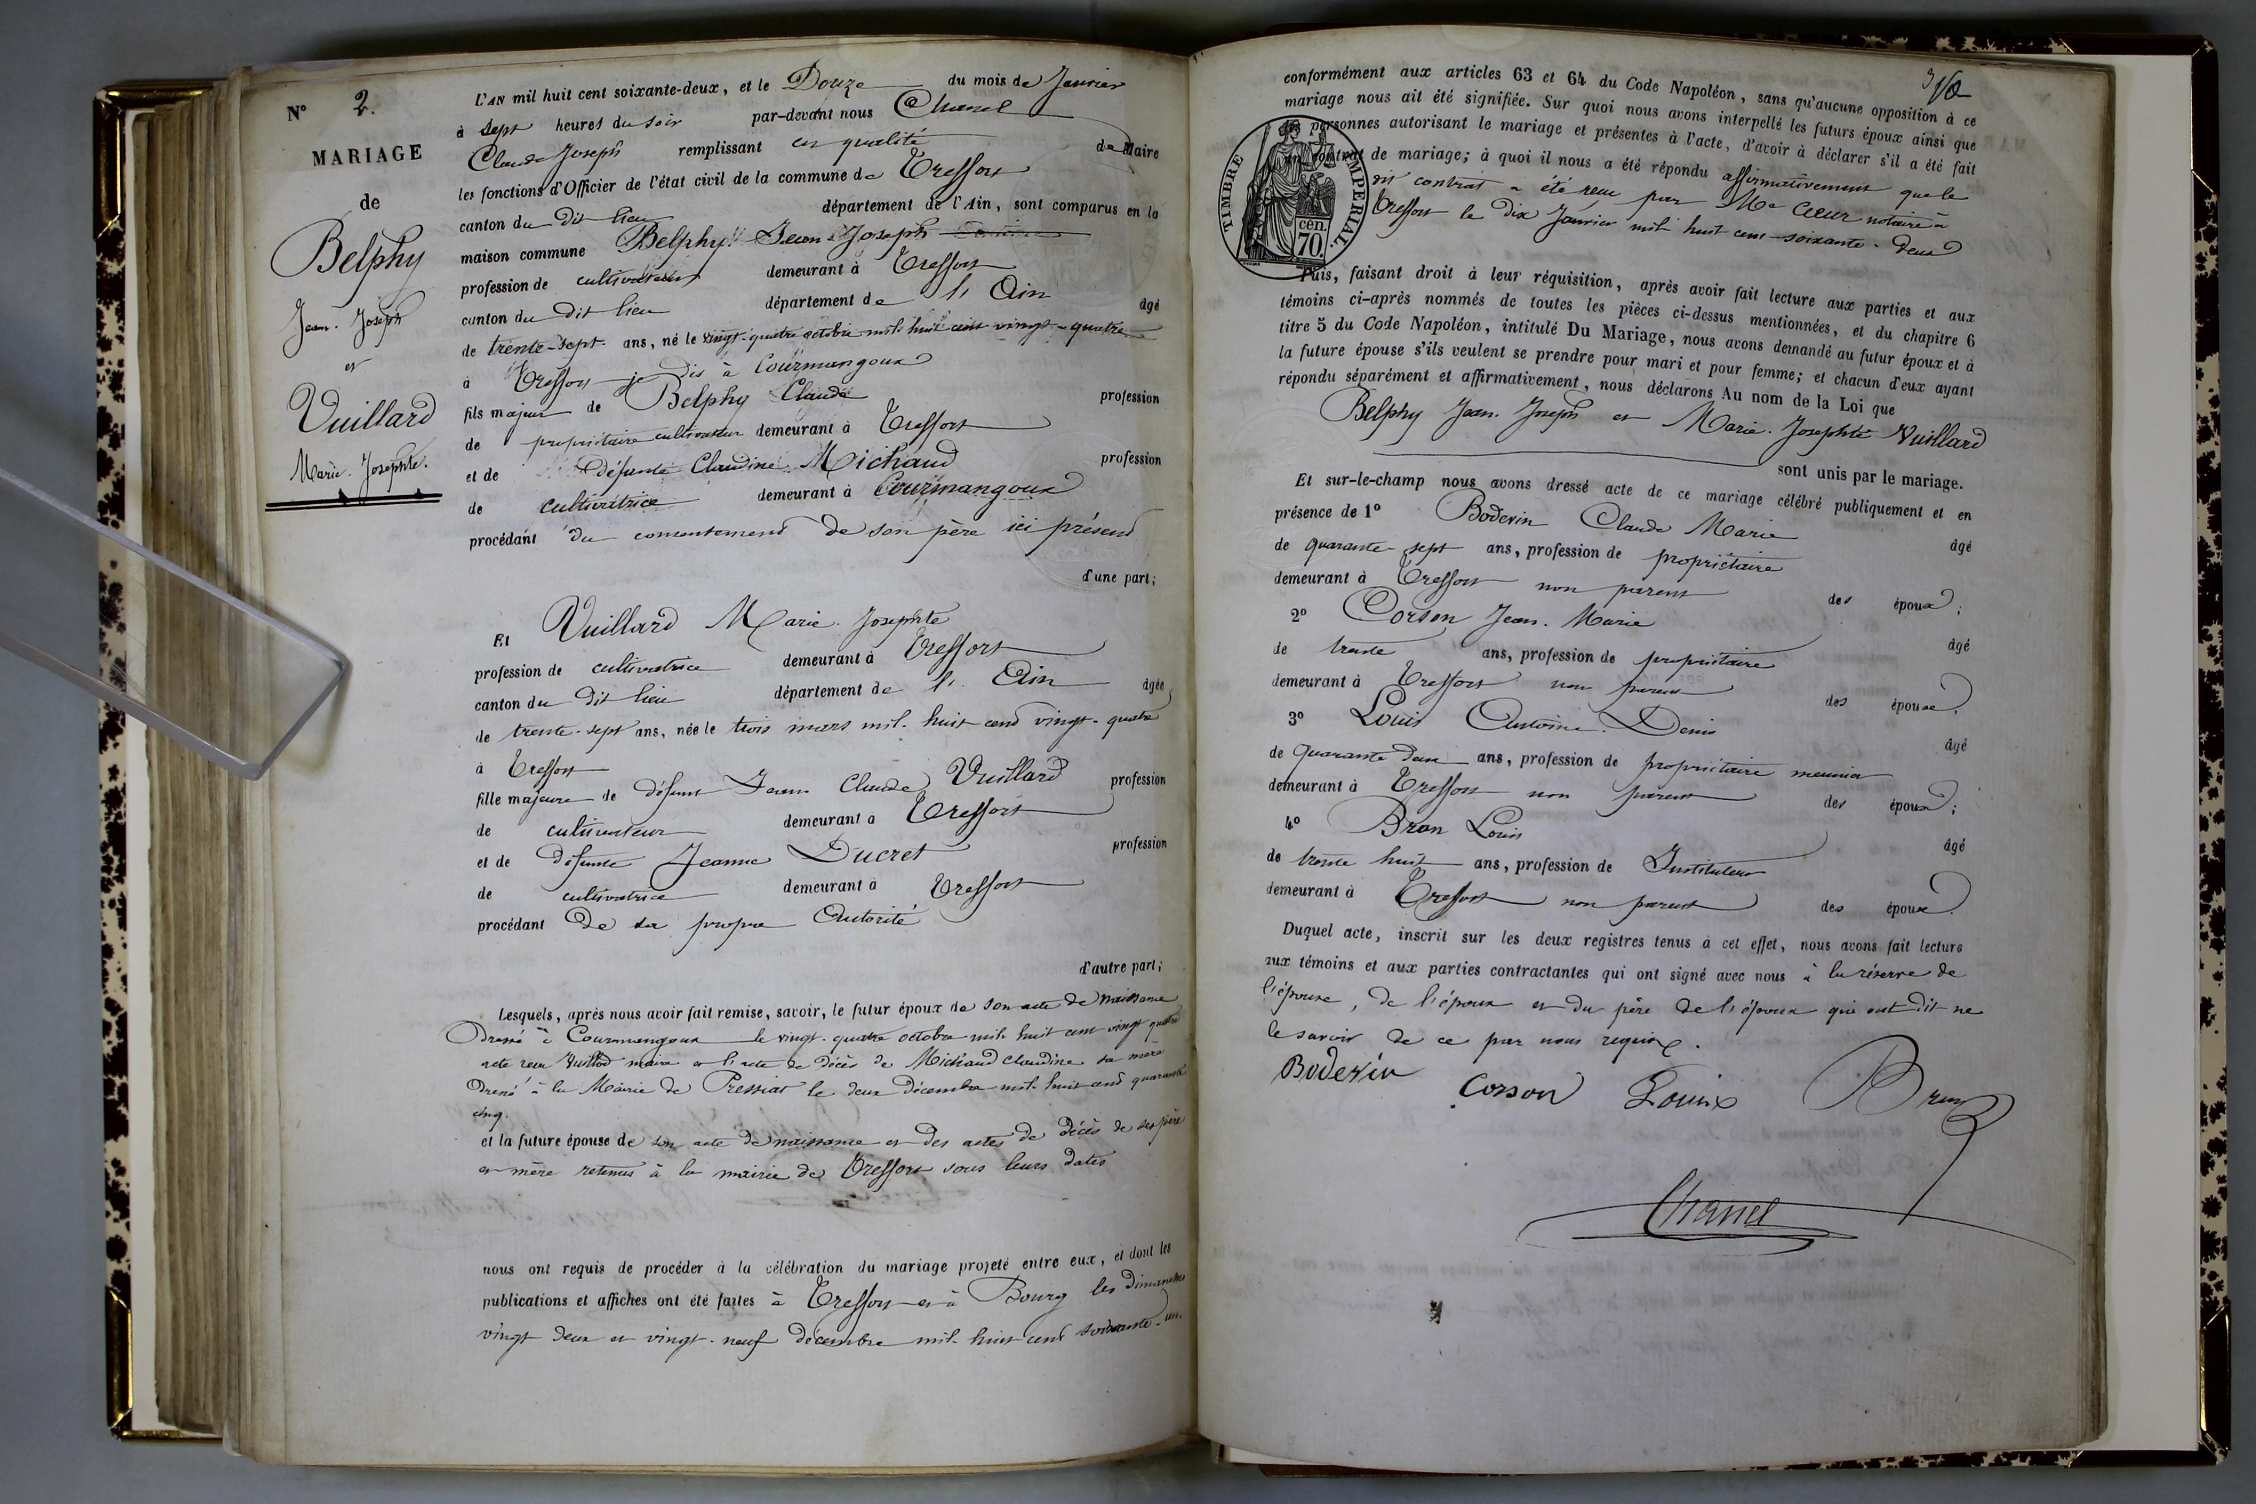 N° 2.
MARIAGE
de
Belphy
Jean. Joseph
et
Vuillard
Marie. Josephte.
L'AN mil huit cent soixante-deux, et le Douze du mois de Janvier
à sept heures du soir par-devant nous Chanel
Claude Joseph remplissant en qualité de Maire
les fonctions d'Officier de l'état civil de la commune de Treffort
canton du dit lieu département de l'Ain, sont comparus en la
maison commune Belphy Jean Joseph
profession de cultivateur demeurant à Treffort
canton du dit lieu département de l'Ain âgé
de trente-sept ans, né le vingt-quatre octobre mil huit cent vingt-quatre
à Treffort je dis à Courmangoux
fils majeur de Belphy Claude profession
de propriétaire cultivateur demeurant à Treffort
et de défunte Claudine Michaud profession
de cultivatrice demeurant à Courmangoux
procédant du consentement de son père ici présent
d'une part;
Et Vuillard Marie. Josephte
profession de cultivatrice demeurant à Treffort
canton du dit lieu département de l'Ain âgée
de trente-sept ans, née le trois mars mil huit cent vingt-quatre
à Treffort
fille majeure de défunt Jean Claude Vuillard profession
de cultivateur demeurant à Treffort
et de défunte Jeanne Ducret profession
de cultivatrice demeurant à Treffort
procédant de sa propre Autorité
d'autre part;
Lesquels, après nous avoir fait remise, savoir, le futur époux de son acte de naissance
dressé à Courmangoux le vingt-quatre octobre mil huit cent vingt quatre
acte reçu maire et l'acte de décès de Michaud Claudine sa mère
dressé à la Mairie de Pressiat le deux décembre mil huit cent quarante
cinq.
et la future épouse de son acte de naissance et des actes de décès de ses père
et mère retenus à la mairie de Treffort sous leurs dates
nous ont requis de procéder à la célébration du mariage projeté entre eux, et dont les
publications et affiches ont été faites à Treffort et à Bourg les dimanches
vingt deux et vingt-neuf décembre mil huit cent soixante-un.
conformément aux articles 63 et 64 du Code Napoléon, sans qu'aucune opposition à ce
mariage nous ait été signifiée. Sur quoi nous avons interpellé les futurs époux ainsi que
les personnes autorisant le mariage et présentes à l'acte, d'avoir à déclarer s'il a été fait
un contrat de mariage; à quoi il nous a été répondu affirmativement que le
dit contrat a été reçu par Me Cœur notaire à
Treffort le dix Janvier mil huit cent soixante-deux
TIMBRE IMPERIAL.
cen.
70.
Puis, faisant droit à leur réquisition, après avoir fait lecture aux parties et aux
témoins ci-après nommés de toutes les pièces ci-dessus mentionnées, et du chapitre 6
titre 5 du Code Napoléon, intitulé Du Mariage, nous avons demandé au futur époux et à
la future épouse s'ils veulent se prendre pour mari et pour femme; et chacun d'eux ayant
répondu séparément et affirmativement, nous déclarons Au nom de la Loi que
Belphy Jean. Joseph et Marie. Josephte Vuillard
sont unis par le mariage.
Et sur-le-champ nous avons dressé acte de ce mariage célébré publiquement et en
présence de 1° Boderin Claude Marie âgé
de quarante-sept ans, profession de propriétaire
demeurant à Treffort non parent des époux;
2° Corson Jean. Marie âgé
de trente ans, profession de propriétaire
demeurant à Treffort non parent des époux;
3° Louis Antoine. Denis âgé
de quarante deux ans, profession de propriétaire meunier
demeurant à Treffort non parent des époux;
4° Brun Louis âgé
de trente huit ans, profession de Instituteur
demeurant à Treffort non parent des époux.
Duquel acte, inscrit sur les deux registres tenus à cet effet, nous avons fait lecture
aux témoins et aux parties contractantes qui ont signé avec nous à la réserve de
l'épouse, de l'époux et du père de l'époux qui ont dit ne
le savoir de ce par nous requis.
Boderin Corson Louis Brun
Chanel